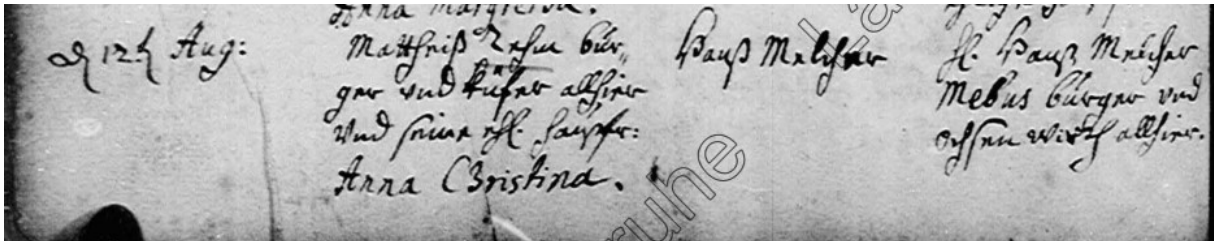 Anna Margretha.
d 12t Aug:
Mattheiß Rehm bür,,
ger vnd küfer allhier
Vnd seine ehl. haußfr:
Anna Christina.
Hanß Melcher
H. Hanß Melcher
Mebus bürger vnd
ochsen wirth allhier.
ruhe
La